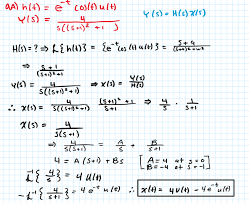 2A) h(t) = e^-t cos(t) u(t)
Y(s) = 4 / s((s+1)^2 + 1)
Y(s) = H(s) X(s)
H(s) = ? ⇒ L{h(t)} = {e^-t cos(t) u(t)} =
⇒ s+1 / (s+1)^2 + 1
Y(s) = 4 / s((s+1)^2 + 1) ⇒ X(s) = Y(s) / H(s)
∴ X(s) = 4 / s((s+1)^2 + 1) · (s+1)^2 + 1 / s+1 ⇒ 4/s · 1/s+1
X(s) = 4 / s(s+1)
⇒ 4 / s(s+1) = A/s + B/s+1
4 = A(s+1) + Bs [A = 4 at s = 0
B = -4 at s = -1]
L^-1{4/s} = 4 u(t)
-L^-1{4/s+1} = 4 e^-t u(t) ∴ x(t) = 4u(t) - 4e^-t u(t)